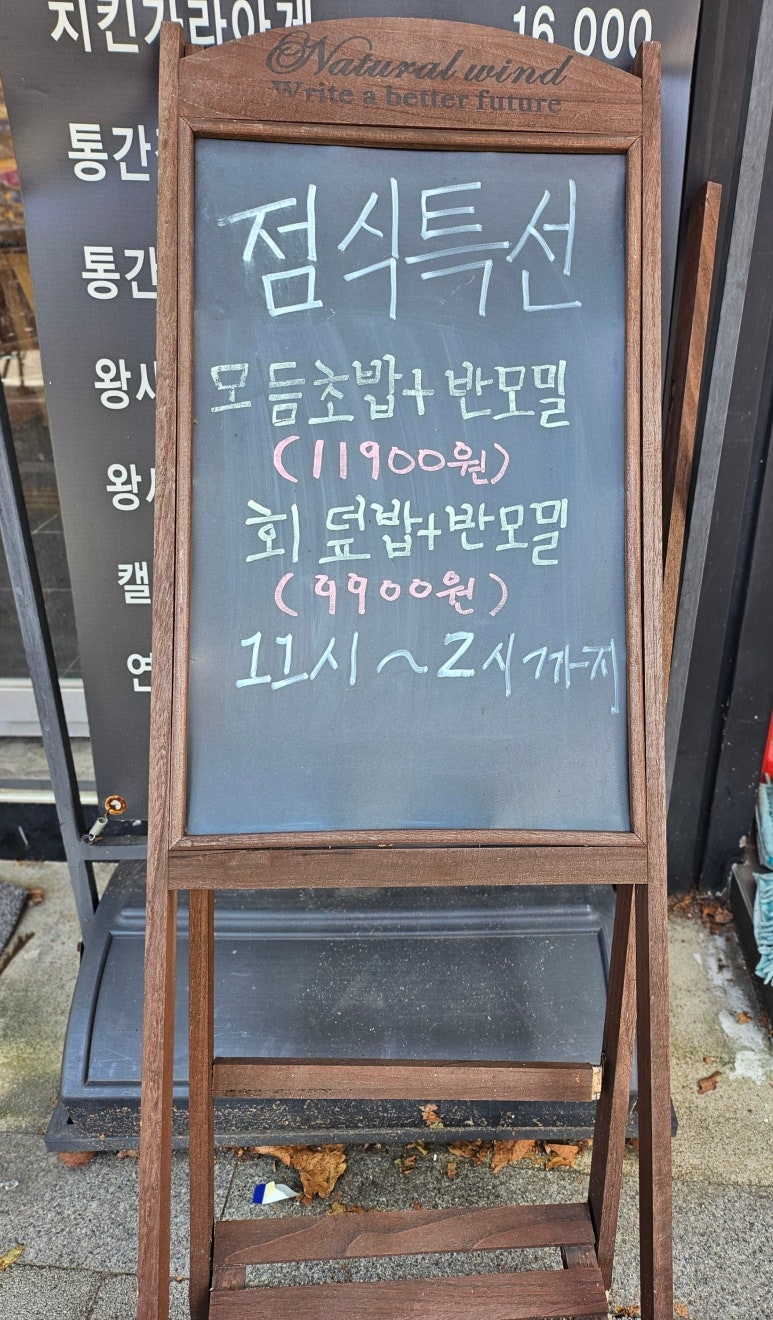 치킨가라아게 16,000
통간
통간
왕새
왕새
캘
연
Natural wind
Write a better future
점식특선
모듬초밥+반모밀
(11900원)
회덮밥+반모밀
(9900원)
11시~2시까지